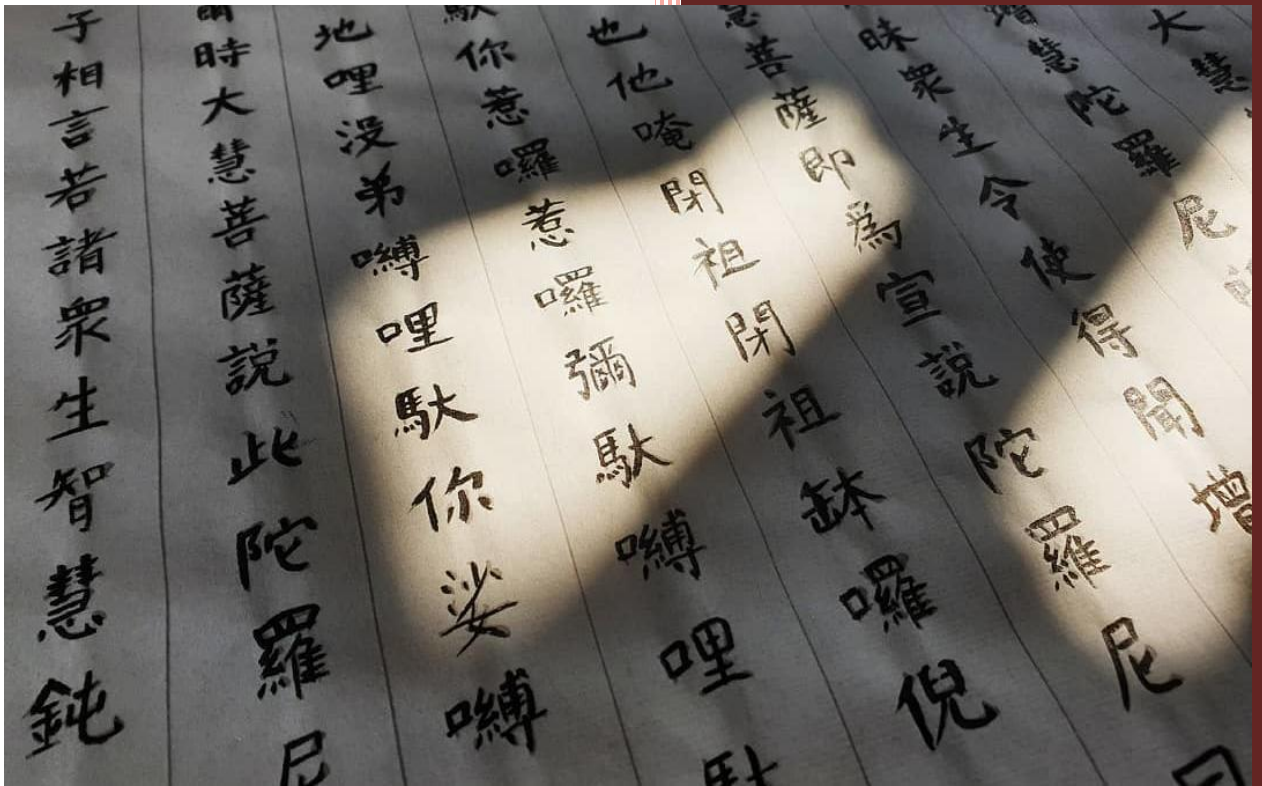 大慧
增慧陀羅尼
昧眾生令使得聞增
慧菩薩即爲宣說陀羅尼曰
也他唵閉祖閉祖缽囉倪
馱你惹囉惹囉彌馱嚩哩馱
地哩没弟嚩哩馱你娑嚩
時大慧菩薩說此陀羅尼
子相言若諸眾生智慧鈍